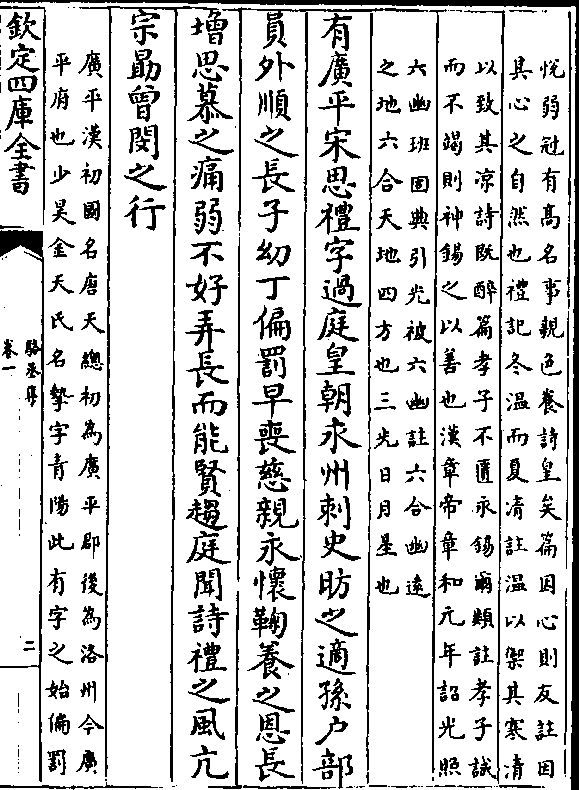 悅弱冠有髙名事親色養詩皇矣篇因心則友註因
其心之自然也禮記冬温而夏凊註温以禦其寒凊
以致其凉詩既醉篇孝子不匱永錫爾類註孝子誠
而不竭則神錫之以善也漢章帝章和元年詔光照
六幽班固典引光被六幽註六合幽逺
之地六合天地四方也三光日月星也
有廣平宋思禮字過庭皇朝永州刺史昉之適孫户部
員外順之長子幼丁偏罰早喪慈親永懷鞠養之恩長
增思慕之痛弱不好弄長而能賢趨庭聞詩禮之風亢
宗勗曾閔之行
廣平漢初國名唐天總初為廣平郡後為洛州今廣
平府也少昊金天氏名摯字青陽此有字之始偏罰
欽定四庫全書
駱丞集
卷一
二